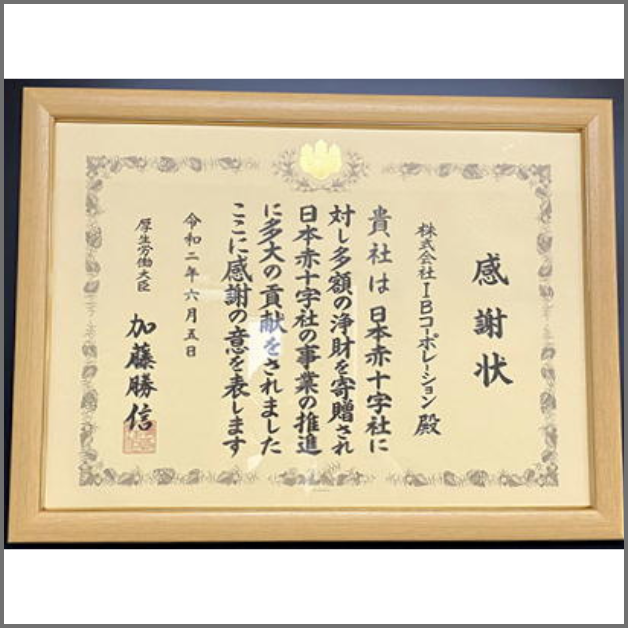 感謝状
株式会社IBコーポレーション 殿
貴社は日本赤十字社に
対し多額の浄財を寄贈され
日本赤十字社の事業の推進
に多大の貢献をされました
ここに感謝の意を表します
令和二年六月五日
厚生労働大臣 加藤勝信